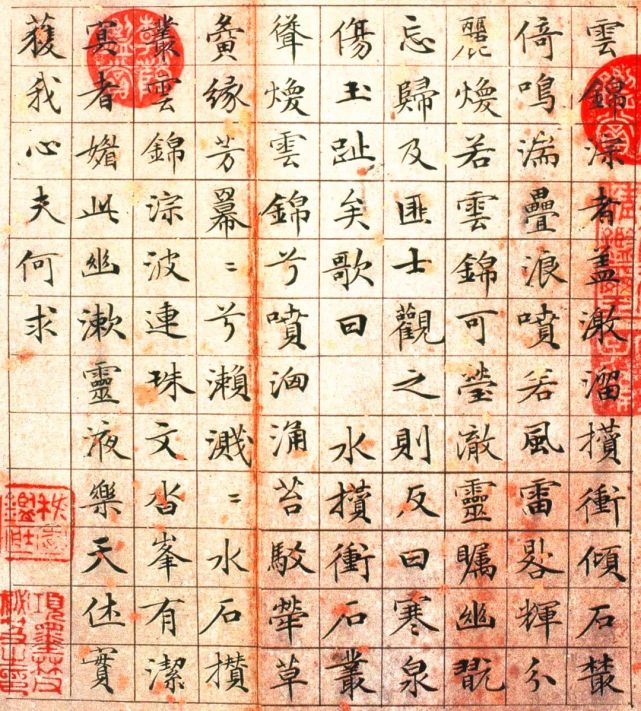 雲錦淙者盖激溜攢衝傾石藂
倚鳴湍疊浪噴若風雷畧輝分
麗煥若雲錦可瑩澈靈矚幽翫
忘歸及匪士觀之則反曰寒泉
傷玉趾矣歌曰 水攢衝石叢
聳煥雲錦兮噴洶涌苔駮犖草
夤緣芳冪〻兮瀨濺〻水石攢
叢雲錦淙波連珠文沓峯有潔
冥者媚此幽漱靈液樂天休實
獲我心夫何求